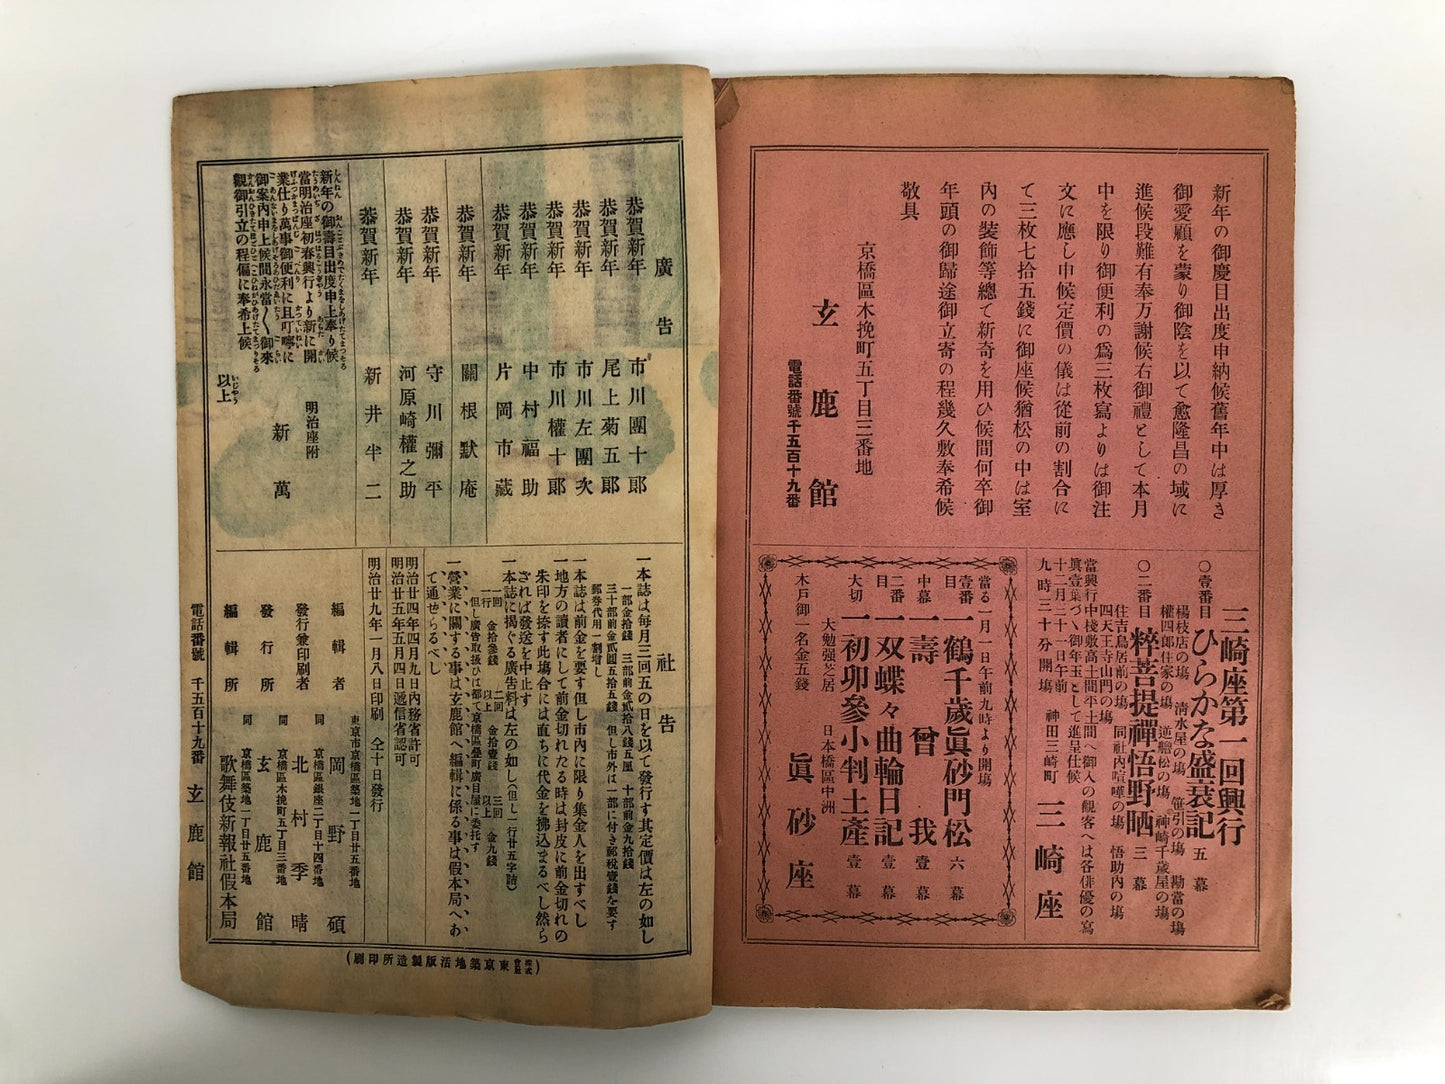 新年の御慶目出度申納候舊年中は厚き
御愛顧を蒙り御陰を以て愈隆昌の域に
進候段難有奉万謝候右御禮として本月
中を限り御便利の爲三枚寫よりは御注
文に應し申候定價の儀は從前の割合に
て三枚七拾五錢に御座候猶松の中は室
內の裝飾等總て新奇を用ひ候間何卒御
年頭の御歸途御立寄の程幾久敷奉希候
敬具
京橋區木挽町五丁目三番地
玄鹿館
電話番號千五百十九番
三崎座第一回興行
○壹番目 ひらかな盛衰記 五幕
楊枝店の塲 淸水屋の塲 笹引の塲 勘當の塲
權四郞住家の塲 逆艪松の塲 神崎千歲屋の塲
○二番目 粹菩提禪悟野晒 三幕
住吉鳥居前の塲 同社內喧嘩の塲 悟助內の塲
四天王寺山門の塲
當興行中棧敷高土間平土間へ御入の觀客へは各俳優の寫
眞壹葉づゝ御年玉として進呈仕候
十二月二十一日午前
九時三十分開塲 神田三崎町 三崎座
當る一月一日午前九時より開塲
壹番目 一鶴千歲眞砂門松 六幕
中幕 一壽曾我 壹幕
二番目 一双蝶々曲輪日記 壹幕
大切 一初卯參小判土產 壹幕
大勉强芝居 日本橋區中洲
木戶御一名金五錢 眞砂座
廣告
恭賀新年 市川團十郞
恭賀新年 尾上菊五郞
恭賀新年 市川左團次
恭賀新年 市川權十郞
恭賀新年 中村福助
恭賀新年 片岡市藏
恭賀新年 關根默庵
恭賀新年 守川彌平
恭賀新年 河原崎權之助
恭賀新年 新井半二
新年の御壽目出度申上奉り候
當明治座初春興行より新に開
業仕り萬事御便利に且叮嚀に
御案內申上候間永當〱御來
觀御引立の程偏に奉希上候
以上
明治座附
新萬
社告
一本誌は每月三回五の日を以て發行す其定價は左の如し
一部金拾錢 三部前金貳拾八錢五厘 十部前金九拾錢
三十部前金貳圓五拾五錢 但し市外は一部に付き郵稅壹錢を要す
郵券代用一割增し
一本誌は前金を要す但し市內に限り集金人を出すべし
一地方の讀者にして前金切れたる時は封皮に前金切れの
朱印を捺す此塲合には直ちに代金を拂込まるべし然ら
ざれば發送を中止す
一本誌に揭ぐる廣告料は左の如し(但し一行廿五字詰)
一回 二回 三回
一行 金拾參錢 以上 金拾壹錢 以上 金九錢
但し廣告取扱ひは都て京橋區疊町廣目屋に委托す
一營業に關する事は玄鹿館へ編輯に係る事は假本局へあ
て通せらるべし
明治廿四年四月九日內務省許可
明治廿五年五月四日遞信省認可
明治廿九年一月八日印刷 仝十日發行
東京市京橋區築地一丁目廿五番地
編輯者 岡野碩
同 京橋區銀座二丁目十四番地
發行兼印刷者 北村季晴
同 京橋區木挽町五丁目三番地
發行所 玄鹿館
同 京橋區築地一丁目廿五番地
編輯所 歌舞伎新報社假本局
電話番號 千五百十九番 玄鹿館
(株式會社東京築地活版製造所印刷)